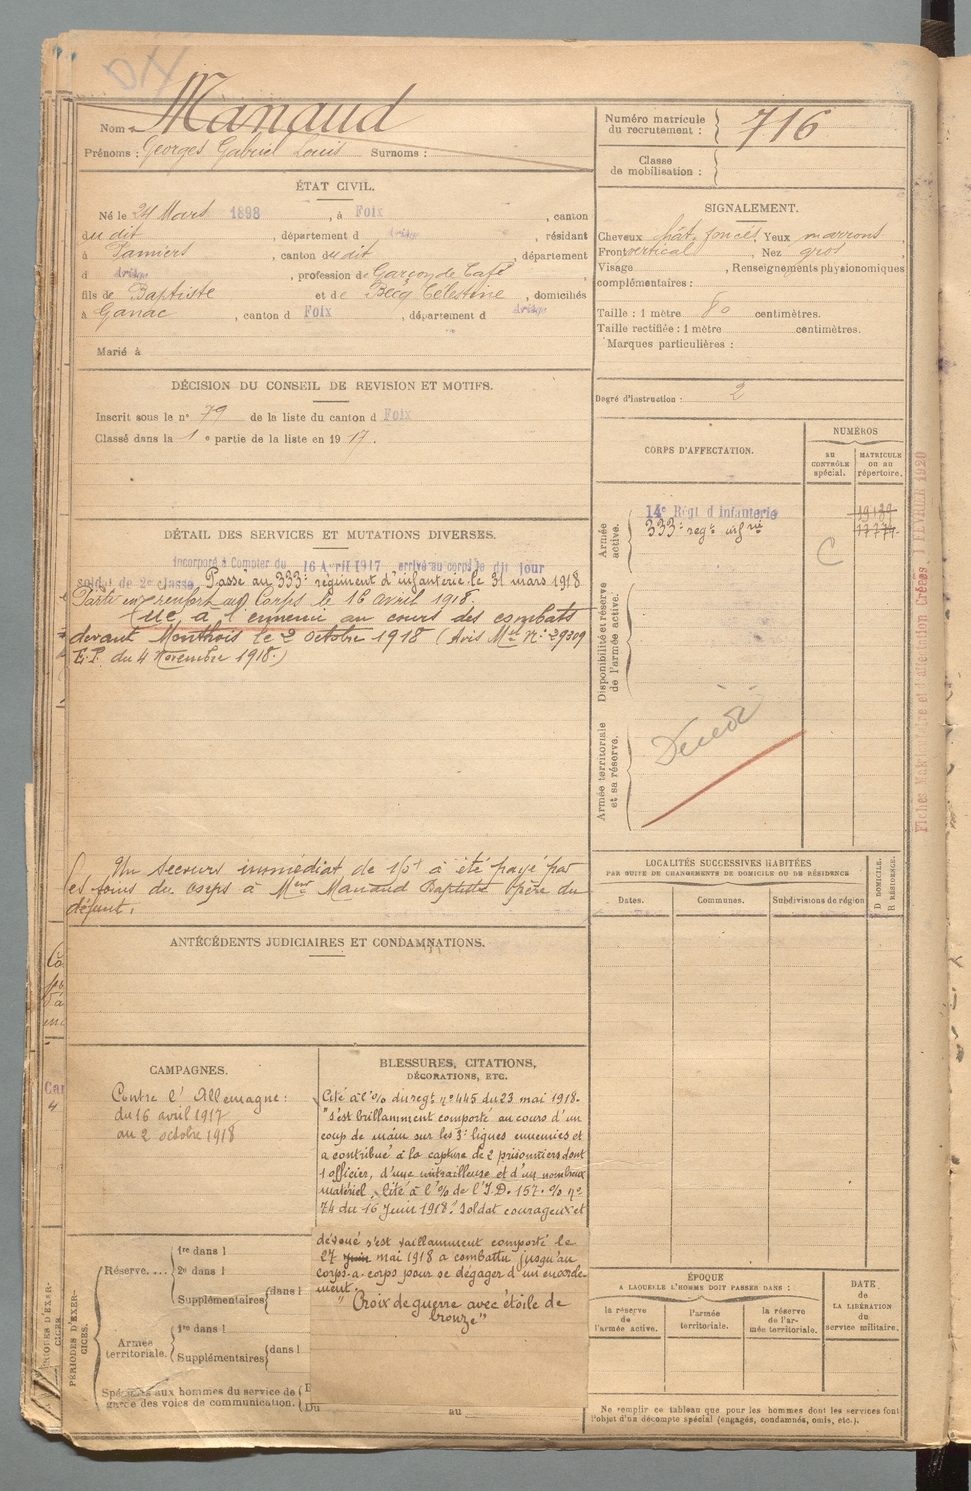 Nom Manaud
Prénoms : Georges Gabriel Louis Surnoms :
Numéro matricule du recrutement : 716
Classe de mobilisation :
ÉTAT CIVIL.
Né le 24 Mars 1898, à Foix, canton
du dit, département d Ariège, résidant
à Pamiers, canton du dit, département
d Ariège, profession de Garçon de Café
fils de Baptiste et de Becq Célestine, domiciliés
à Ganac, canton d Foix, département d Ariège
Marié à
SIGNALEMENT.
Cheveux chât. foncés. Yeux marrons,
Front vertical, Nez gros
Visage , Renseignements physionomiques
complémentaires :
Taille : 1 mètre 80 centimètres.
Taille rectifiée : 1 mètre centimètres.
Marques particulières :
Degré d'instruction : 2
DÉCISION DU CONSEIL DE REVISION ET MOTIFS.
Inscrit sous le n° 79 de la liste du canton d Foix
Classé dans la 1e partie de la liste en 1917.
CORPS D'AFFECTATION.
NUMÉROS
AU CONTRÔLE spécial.
MATRICULE OU AU répertoire.
Armée active.
14e Régt d'Infanterie
333e regt infrie
C
Disponibilité et réserve de l'armée active.
Armée territoriale et sa réserve.
Décédé
DÉTAIL DES SERVICES ET MUTATIONS DIVERSES.
Incorporé à Compter du 16 Avril 1917 arrivé au corps le dit jour
soldat de 2e classe. Passé au 333e régiment d'infanterie le 31 mars 1918
Parti en renfort au Corps le 16 avril 1918.
Tué à l'ennemi au cours des combats
devant Monthois le 2 octobre 1918 (Avis Mel N: 29309
E.P. du 4 Novembre 1918.)
Un secours immédiat de 150f à été payé par
les soins du Corps à Meur Manaud Baptiste père du
défunt.
LOCALITÉS SUCCESSIVES HABITÉES
PAR SUITE DE CHANGEMENTS DE DOMICILE OU DE RÉSIDENCE
Dates. Communes. Subdivisions de région
D DOMICILE. R RÉSIDENCE.
ANTÉCÉDENTS JUDICIAIRES ET CONDAMNATIONS.
CAMPAGNES.
Contre l'Allemagne :
du 16 avril 1917
au 2 octobre 1918
BLESSURES, CITATIONS,
DÉCORATIONS, ETC.
Cité à l'% du regt n° 445 du 23 mai 1918.
"s'est brillamment comporté au cours d'un
coup de main sur les 3e lignes ennemies et
a contribué à la capture de 2 prisonniers dont
1 officier, d'une mitrailleuse et d'un nombreux
matériel". Cité à l'% de l'I.D. 157. % n°
74 du 16 Juin 1918. "Soldat courageux et
dévoué s'est vaillamment comporté le
27 juin mai 1918 a combattu jusqu'au
corps-à-corps pour se dégager d'un encercle-
ment."
"Croix de guerre avec étoile de
bronze"
PÉRIODES D'EXERCICES.
Réserve....
1re dans l
2e dans l
Supplémentaires dans l
Armée territoriale.
1re dans l
Supplémentaires dans l
Spéciales aux hommes du service de
garde des voies de communication.
Du au
ÉPOQUE
A LAQUELLE L'HOMME DOIT PASSER DANS :
la réserve de l'armée active.
l'armée territoriale.
la réserve de l'armée territoriale.
DATE de LA LIBÉRATION du service militaire.
Ne remplir ce tableau que pour les hommes dont les services font
l'objet d'un décompte spécial (engagés, condamnés, omis, etc.).